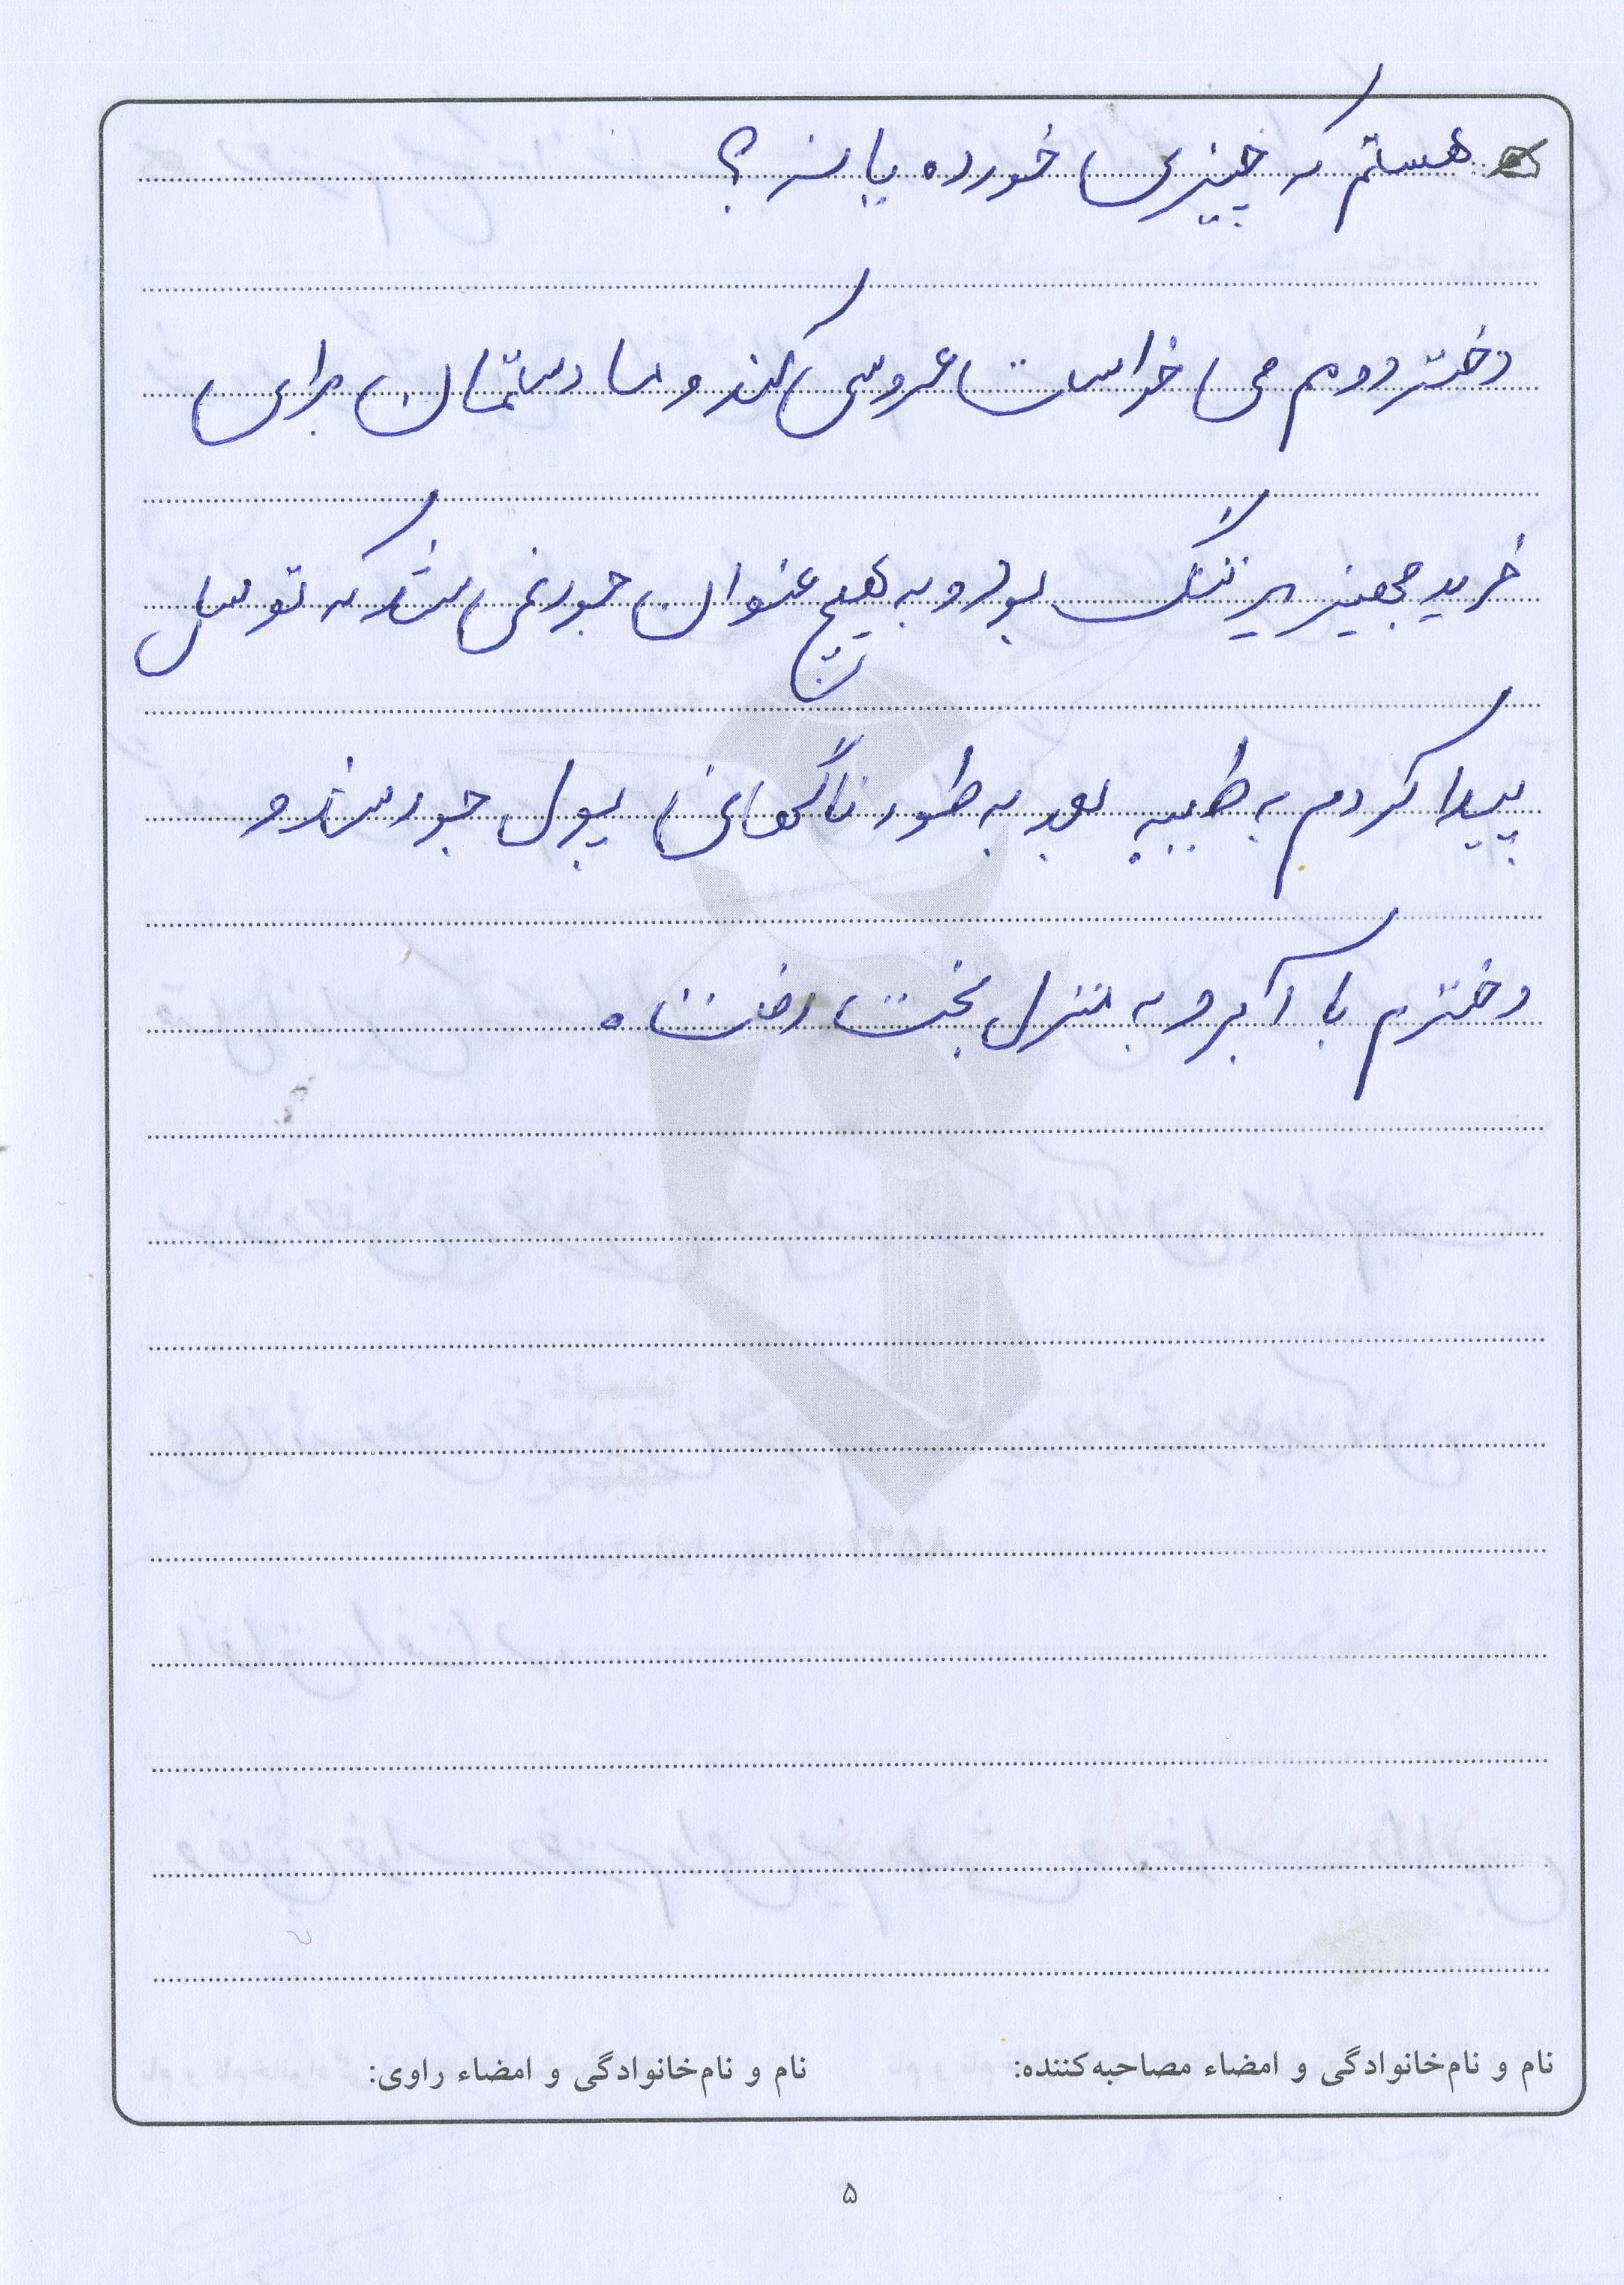 هستم که چیزی خورده یا نه؟
دختر دوم می خواست عروسی کند و ما دستمان برای
خرید جهیزیر تنگ بود و به هیچ عنوان جور نمی شد که توسل
پیدا کردم به طیبه بعد به طور ناگهانی پول جور شد و
دخترم با آبرو به منزل بخت رفت.
نام و نام‌خانوادگی و امضاء مصاحبه‌کننده: نام و نام‌خانوادگی و امضاء راوی:
۵